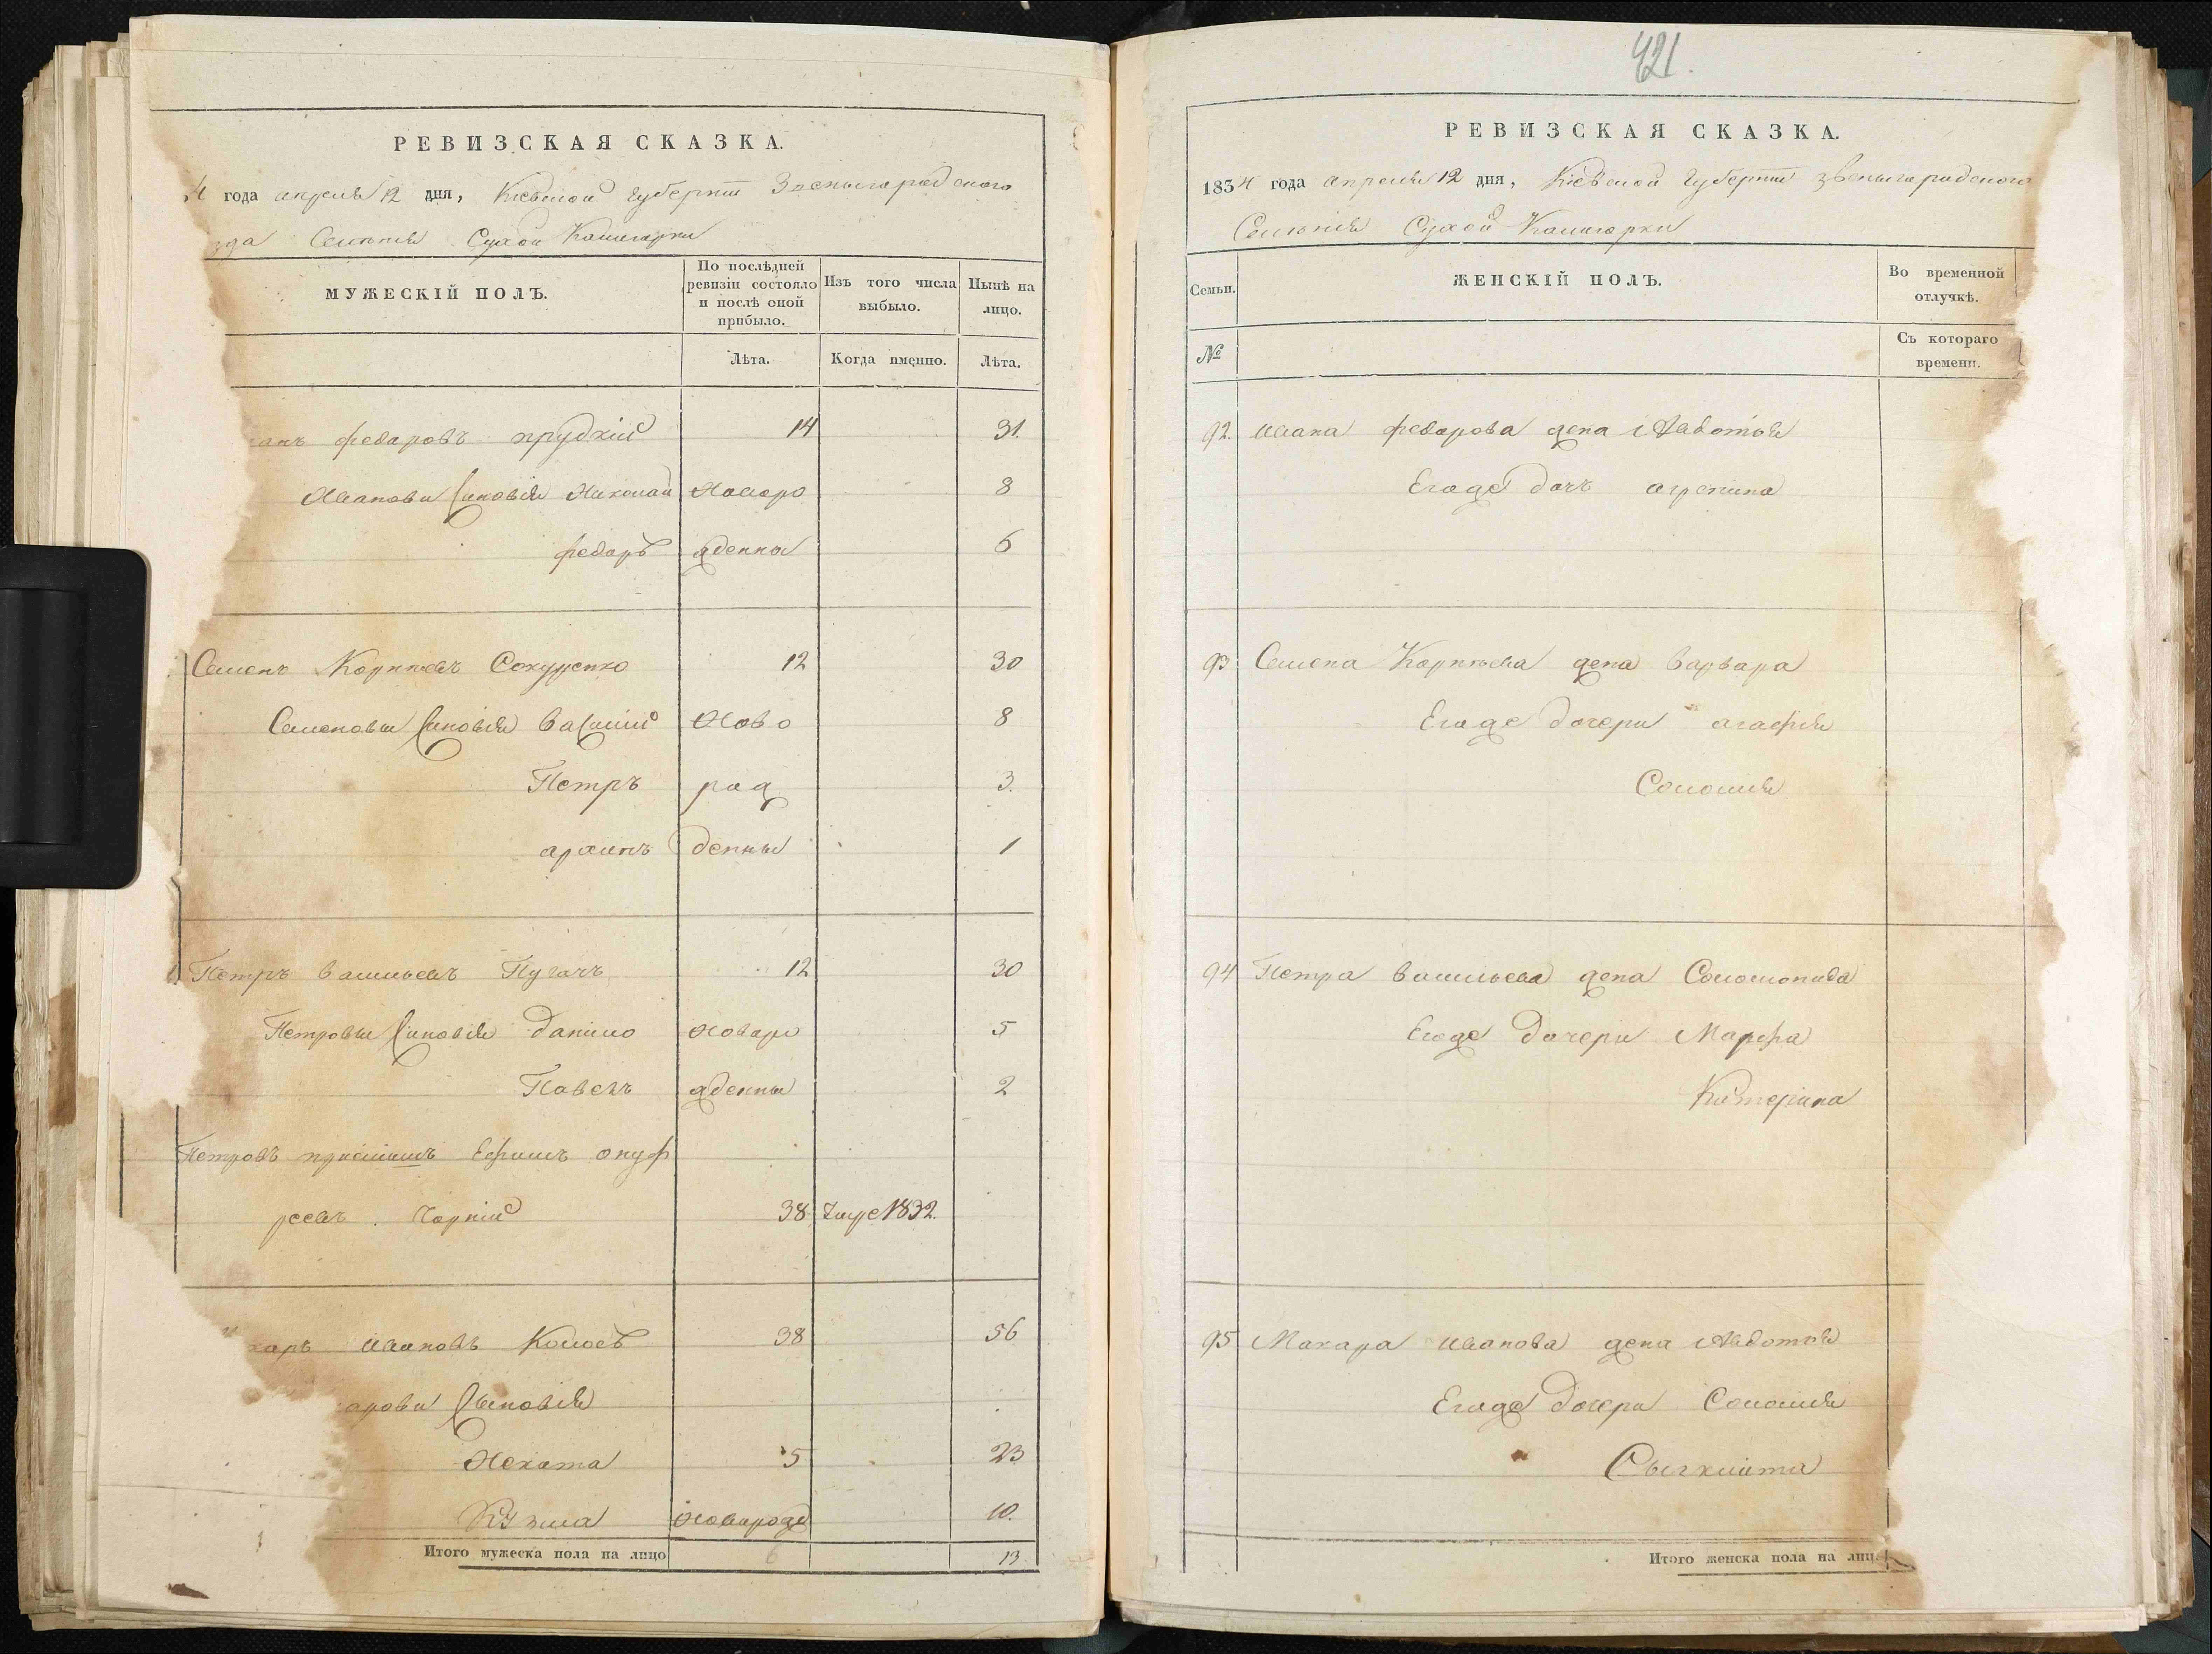 РЕВИЗСКАЯ СКАЗКА.
4 года апреля 12 дня, Кіевской губерніи Звенигородского
зда Селенія Сухой Калигорки
МУЖЕСКІЙ ПОЛЪ.
По послѣдней ревизіи состояло и послѣ оной прибыло.
Изъ того числа выбыло.
Нынѣ на лицо.
Лѣта.
Когда именно.
Лѣта.
анъ Федаровъ прудкій 14 31.
Ивановы Синовія Николай Новоро 8
Федаръ жденны 6
Семенъ Корнѣевъ 12 30
Семеновы Синовія Василій Ново 8
Петръ рож 3.
архипъ денны 1
Петръ васильевъ Пугачъ 12 30
Петровы Синовія Данило Новоро 5
Павелъ жденны 2
Петровъ Ефимъ онуф
реевъ Чорній 38 1832.
каръ Ивановъ Колосъ 38 56
аровы Сыновія
Некита 5 23
Кузма Новорожд 10.
Итого мужеска пола на лицо 6 13
421.
РЕВИЗСКАЯ СКАЗКА.
1834 года апреля 12 дня, Кіевской губерніи звенигородского
Селенія Сухой Калигорки
Семьи.
ЖЕНСКІЙ ПОЛЪ.
Во временной отлучкѣ.
№
Съ котораго времени.
92. Ивана Федарова жена Авдотья
Егоже дочъ агрепина
93 Семена Корнѣева жена варвара
Егоже дочери агафія
Соломія
94 Петра васильева жена Соломонида
Егоже Дочери Марфа
Катерина
95 Макара Иванова жена Авдотья
Егоже дочери Соломія
Итого женска пола на лиц